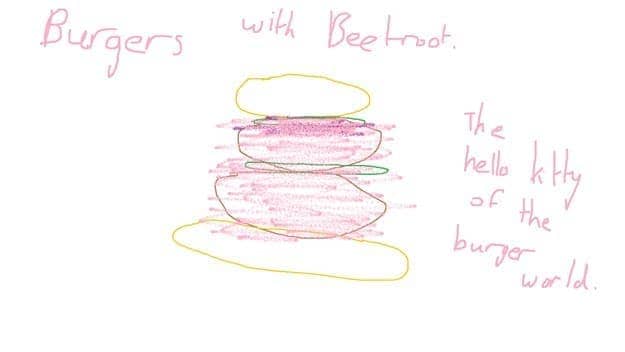 Burgers with Beetroot.
The
hello kitty
of the
burger
world.